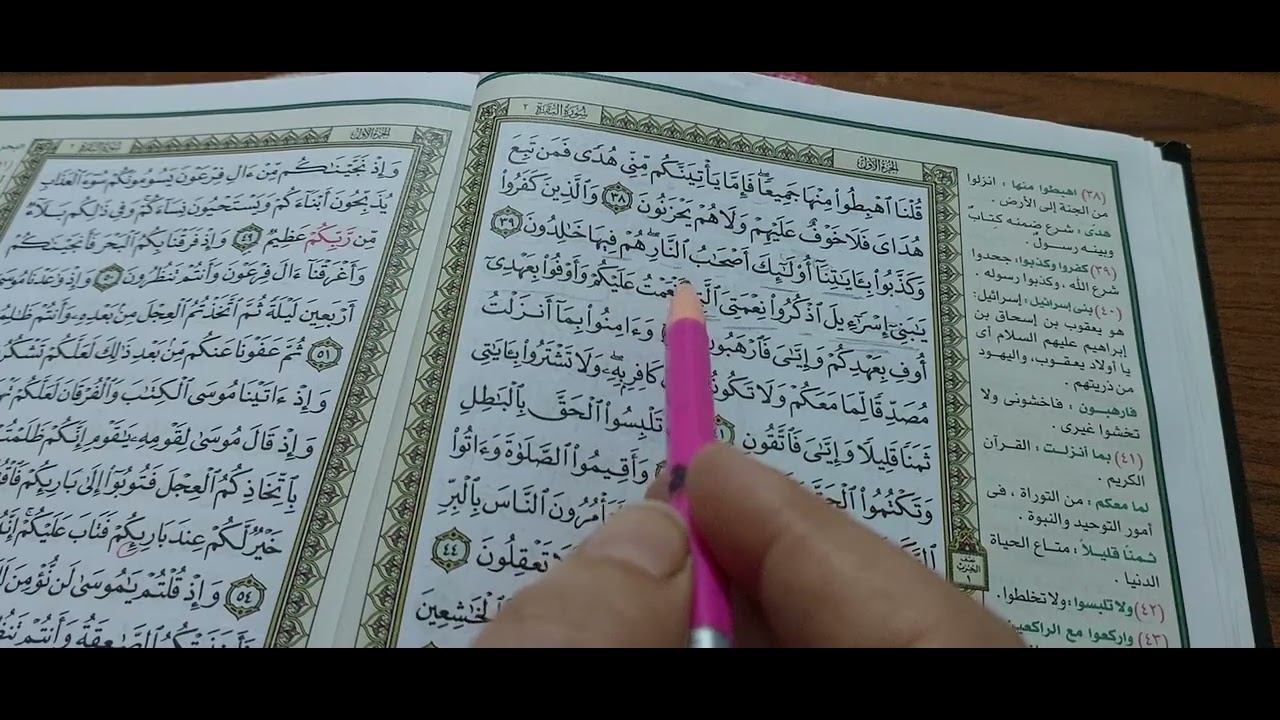 سُورَةُ البَقَرَةِ ٢
الجُزْءُ الأَوَّلُ
قُلْنَا ٱهْبِطُواْ مِنْهَا جَمِيعًاۖ فَإِمَّا يَأْتِيَنَّكُم مِّنِّى هُدًى فَمَن تَبِعَ
هُدَاىَ فَلَا خَوْفٌ عَلَيْهِمْ وَلَا هُمْ يَحْزَنُونَ ٣٨ وَٱلَّذِينَ كَفَرُواْ
وَكَذَّبُواْ بِـَٔايَـٰتِنَآ أُوْلَـٰٓئِكَ أَصْحَـٰبُ ٱلنَّارِۖ هُمْ فِيهَا خَـٰلِدُونَ ٣٩
يَـٰبَنِىٓ إِسْرَٰٓءِيلَ ٱذْكُرُواْ نِعْمَتِىَ أَنْعَمْتُ عَلَيْكُمْ وَأَوْفُواْ بِعَهْدِىٓ
أُوفِ بِعَهْدِكُمْ وَإِيَّـٰىَ فَٱرْهَبُونِ وَءَامِنُواْ بِمَآ أَنزَلْتُ
مُصَدِّقًا لِّمَا مَعَكُمْ وَلَا تَكُونُوٓاْ كَافِرِۭ بِهِۦۖ وَلَا تَشْتَرُواْ بِـَٔايَـٰتِى
ثَمَنًا قَلِيلًا وَإِيَّـٰىَ فَٱتَّقُونِ تَلْبِسُواْ ٱلْحَقَّ بِٱلْبَـٰطِلِ
وَتَكْتُمُواْ ٱلْحَقَّ وَأَقِيمُواْ ٱلصَّلَوٰةَ وَءَاتُواْ
أَتَأْمُرُونَ ٱلنَّاسَ بِٱلْبِرِّ
تَعْقِلُونَ ٤٤
ٱلْخَـٰشِعِينَ
(٣٨) اهبطوا منها : انزلوا
من الجنة إلى الأرض .
هدى : شرع ضمنه كتابٌ
وبينه رسول .
(٣٩) كفروا وكذبوا: جحدوا
شرع الله ، وكذبوا رسوله .
(٤٠) بنى إسرائيل : إسرائيل:
هو يعقوب بن إسحاق بن
إبراهيم عليهم السلام أى
يا أولاد يعقوب، واليهود
من ذريتهم .
فارهبون : فاخشونى ولا
تخشوا غيرى .
(٤١) بما أنزلت : القرآن
الكريم .
لما معكم : من التوراة ، فى
أمور التوحيد والنبوة .
ثمنا قليلاً : متاع الحياة
الدنيا .
(٤٢) ولا تلبسوا: ولا تخلطوا.
(٤٣) واركعوا مع الراكعين
الجُزْءُ الأَوَّلُ
سُورَةُ البَقَرَةِ ٢
وَإِذْ نَجَّيْنَـٰكُم مِّنْ ءَالِ فِرْعَوْنَ يَسُومُونَكُمْ سُوٓءَ ٱلْعَذَابِ
يُذَبِّحُونَ أَبْنَآءَكُمْ وَيَسْتَحْيُونَ نِسَآءَكُمْۚ وَفِى ذَٰلِكُم بَلَآءٌ
مِّن رَّبِّكُمْ عَظِيمٌ ٤٩ وَإِذْ فَرَقْنَا بِكُمُ ٱلْبَحْرَ فَأَنجَيْنَـٰكُمْ
وَأَغْرَقْنَآ ءَالَ فِرْعَوْنَ وَأَنتُمْ تَنظُرُونَ ٥٠ وَإِذْ وَٰعَدْنَا مُوسَىٰٓ
أَرْبَعِينَ لَيْلَةً ثُمَّ ٱتَّخَذْتُمُ ٱلْعِجْلَ مِنۢ بَعْدِهِۦ وَأَنتُمْ
٥١ ثُمَّ عَفَوْنَا عَنكُم مِّنۢ بَعْدِ ذَٰلِكَ لَعَلَّكُمْ
وَإِذْ ءَاتَيْنَا مُوسَى ٱلْكِتَـٰبَ وَٱلْفُرْقَانَ لَعَلَّكُمْ
وَإِذْ قَالَ مُوسَىٰ لِقَوْمِهِۦ يَـٰقَوْمِ إِنَّكُمْ
بِٱتِّخَاذِكُمُ ٱلْعِجْلَ فَتُوبُوٓاْ إِلَىٰ بَارِئِكُمْ
خَيْرٌ لَّكُمْ عِندَ بَارِئِكُمْ فَتَابَ عَلَيْكُمْۚ
٥٤ وَإِذْ قُلْتُمْ يَـٰمُوسَىٰ لَن نُّؤْمِنَ
ٱلصَّـٰعِقَةُ وَأَنتُمْ